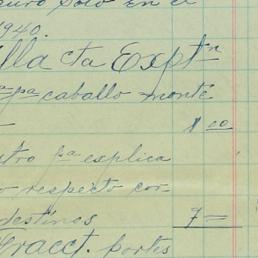 1940.
lla cta Exptn
pa caballo monte
$ 00
tro pa esplica
o respecto cor-
destinos 7=
Fracct. portes